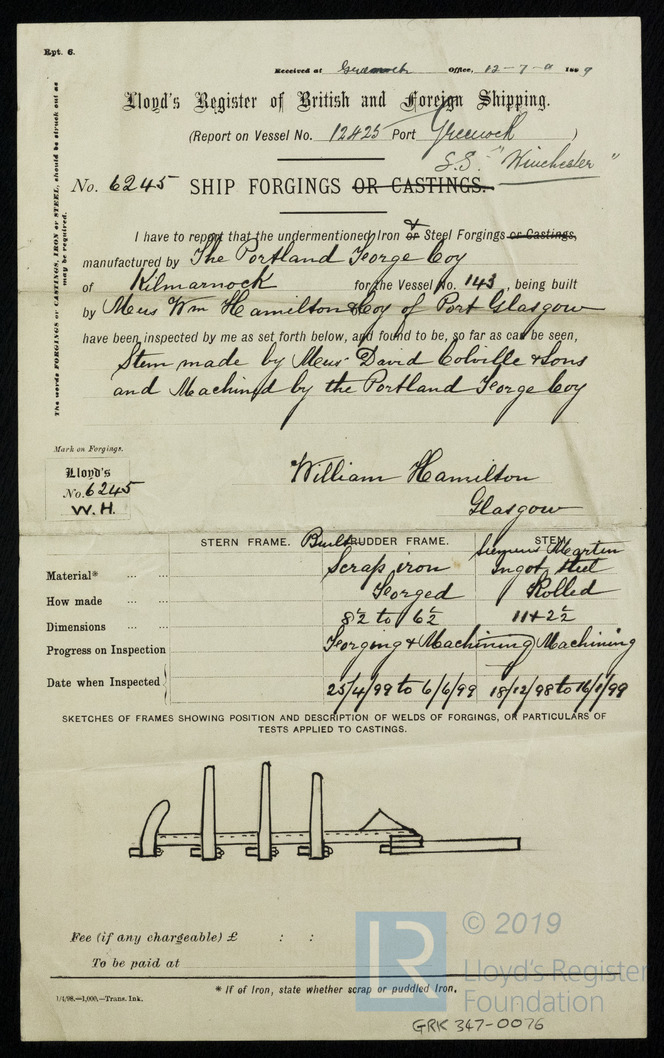 Rpt. 6.
Received at Greenock Office, 12-7- 1899
Lloyd's Register of British and Foreign Shipping.
(Report on Vessel No. 12425 Port Greenock )
S.S. "Winchester"
No. 6245 SHIP FORGINGS OR CASTINGS.
I have to report that the undermentioned Iron or & Steel Forgings or Castings,
manufactured by The Portland Forge Coy
of Kilmarnock for the Vessel No. 143, being built
by Mess Wm Hamilton & Coy of Port Glasgow
have been inspected by me as set forth below, and found to be, so far as can be seen,
Stem made by Mess David Colville & Sons
and Machined by the Portland Forge Coy
The words FORGINGS or CASTINGS, IRON or STEEL, should be struck out as
may be required.
Mark on Forgings.
Lloyd's
No. 6245
W. H.
William Hamilton
Glasgow
STERN FRAME. Built RUDDER FRAME. STEM.
Material* Scrap iron Siemens Martin Ingot Steel
How made Forged Rolled
Dimensions 8½ to 6½ 11 + 2½
Progress on Inspection Forging & Machining Machining
Date when Inspected 25/4/99 to 6/6/99 18/12/98 to 16/1/99
SKETCHES OF FRAMES SHOWING POSITION AND DESCRIPTION OF WELDS OF FORGINGS, OR PARTICULARS OF
TESTS APPLIED TO CASTINGS.
Fee (if any chargeable) £ : :
To be paid at
* If of Iron, state whether scrap or puddled Iron.
1/4/98.—1,000.—Trans. Ink.
LR
© 2019
Lloyd's Register
Foundation
GRK 347-0076